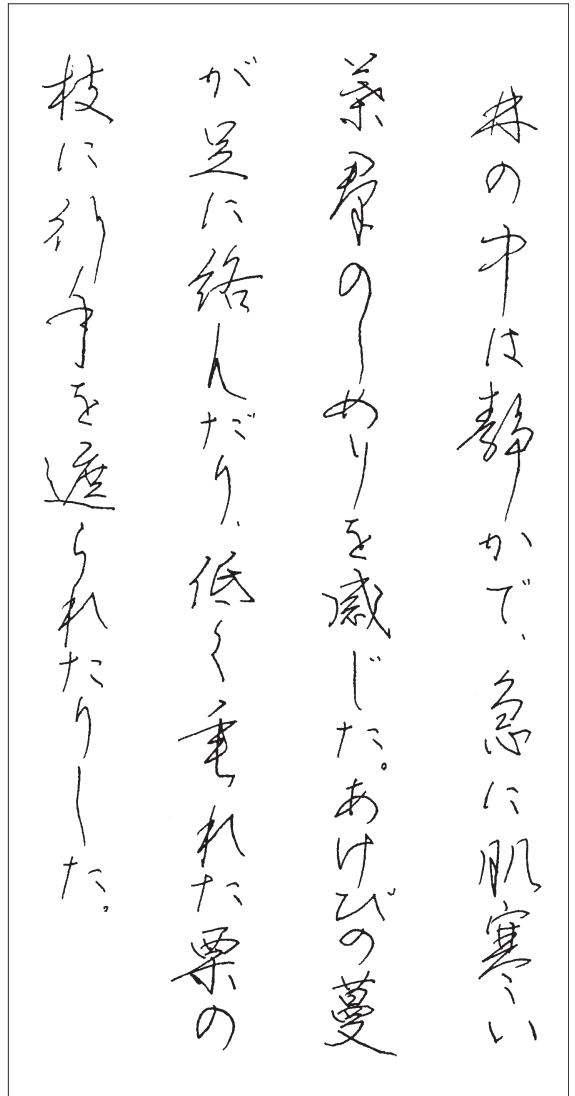 林の中は静かで、急に肌寒い
葉群のしめりを感じた。あけびの蔓
が足に絡んだり、低く垂れた栗の
枝に行手を遮られたりした。